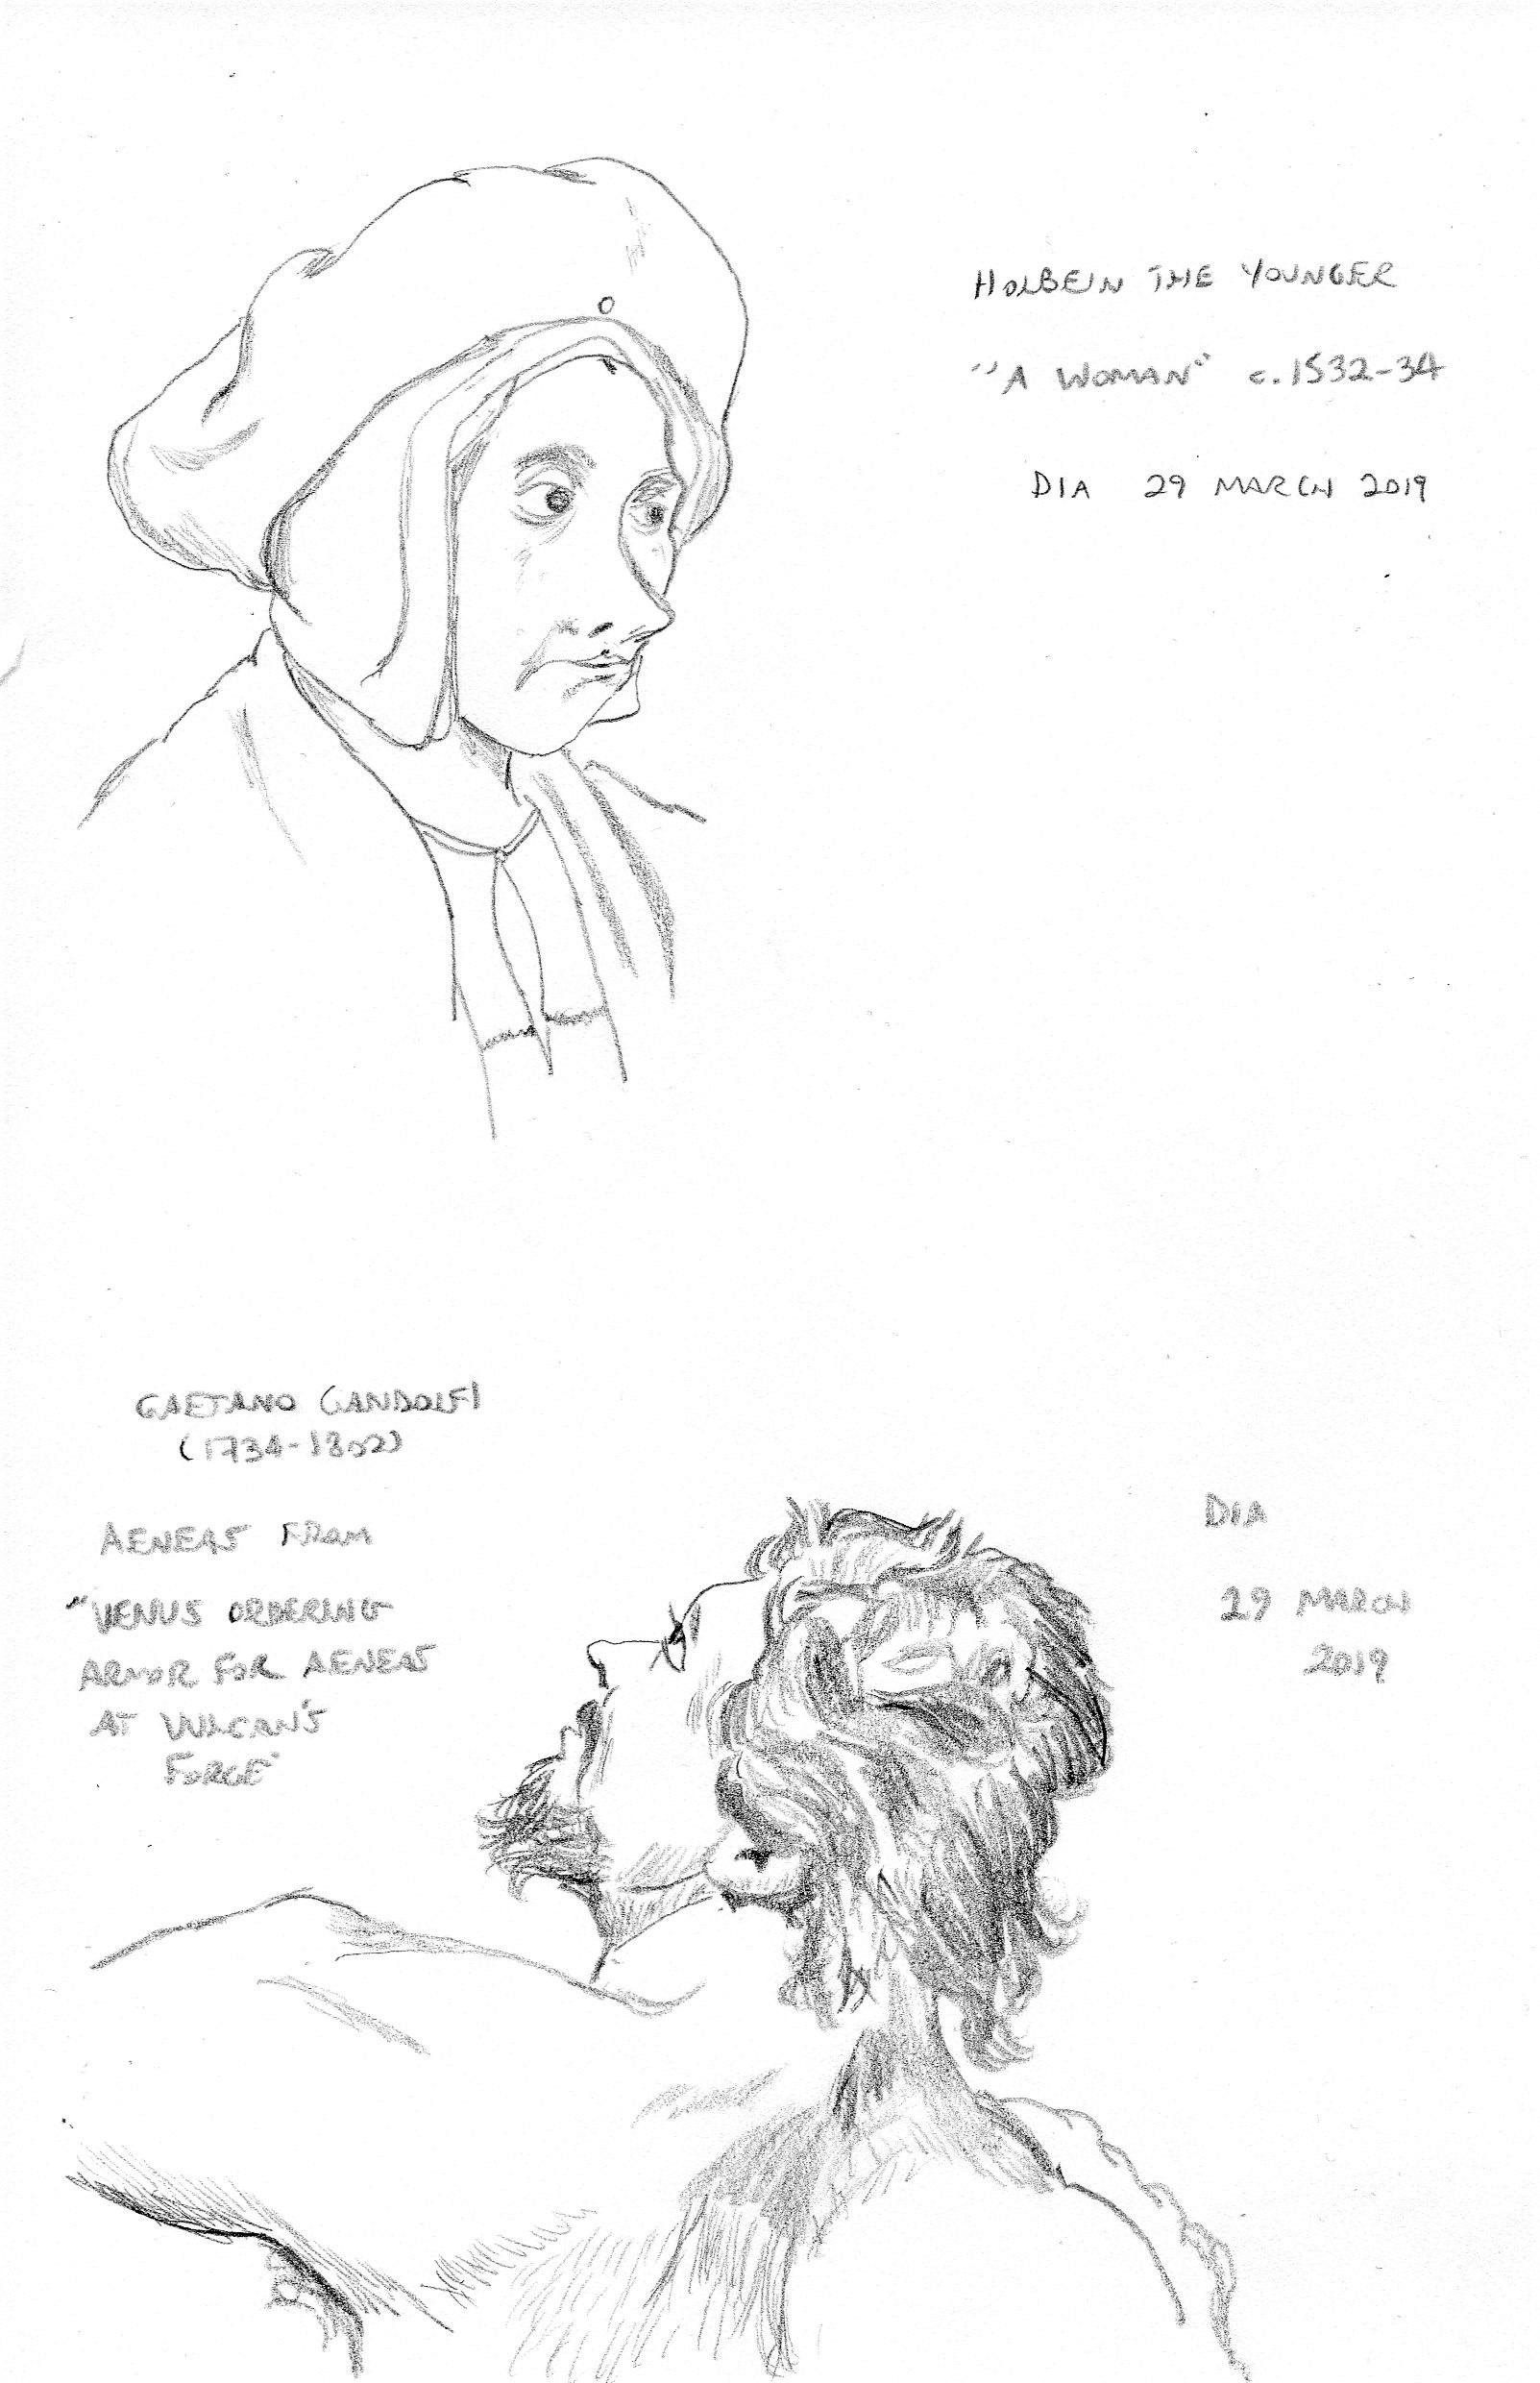 HOLBEIN THE YOUNGER
"A WOMAN" c. 1532-34
DIA 29 MARCH 2019
GAETANO GANDOLFI
(1734-1802)
AENEAS FROM
"VENUS ORDERING
ARMOR FOR AENEAS
AT VULCAN'S
FORGE"
DIA
29 MARCH
2019